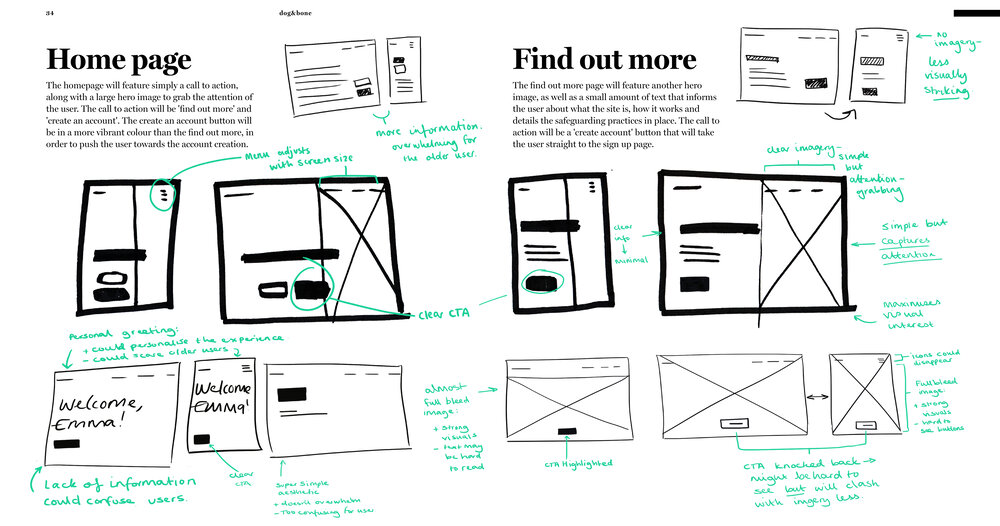 34
dog&bone
Home page
The homepage will feature simply a call to action,
along with a large hero image to grab the attention of
the user. The call to action will be 'find out more' and
'create an account'. The create an account button will
be in a more vibrant colour than the find out more, in
order to push the user towards the account creation.
more information.
overwhelming for
the older user.
Menu adjusts
with screen size
clear CTA
Personal greeting:
+ could personalise the experience
- could scare older users
Welcome,
Emma!
Welcome
Emma!
Lack of information
could confuse users.
clear
CTA
super simple
aesthetic
+ doesn't overwhelm
- Too confusing for user
Find out more
The find out more page will feature another hero
image, as well as a small amount of text that informs
the user about what the site is, how it works and
details the safeguarding practices in place. The call to
action will be a 'create account' button that will take
the user straight to the sign up page.
no
imagery-
less
visually
striking
clear imagery-
simple
but
attention-
grabbing
clear
info
minimal
simple but
captures
attention
Maximises
visual
interest
almost
full bleed
image:
+ strong
visuals
- text may
be hard
to read
CTA Highlighted
icons could
disappear
Full bleed
image:
+ strong
visuals
- hard to
see buttons
CTA knocked back
might be hard to
see but will clash
with imagery less.